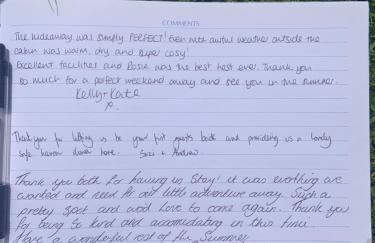 COMMENTS
The hideaway was simply PERFECT! Even with awful weather outside the
cabin was warm, dry and super cosy!
Excellent facilities and Rosie was the best host ever. Thank you
so much for a perfect weekend away and see you in the summer.
Kelly + Kate
Thank you for letting us be your first guests back and providing us a lovely
safe haven down here. Suzi + Andrew
Thank you both for having us stay! it was everything we
wanted and need for our little adventure away. Such a
pretty spot and wod love to come again. Thank you
for being so kind and accomodating in this time.
Have a wonderful rest of the Summer